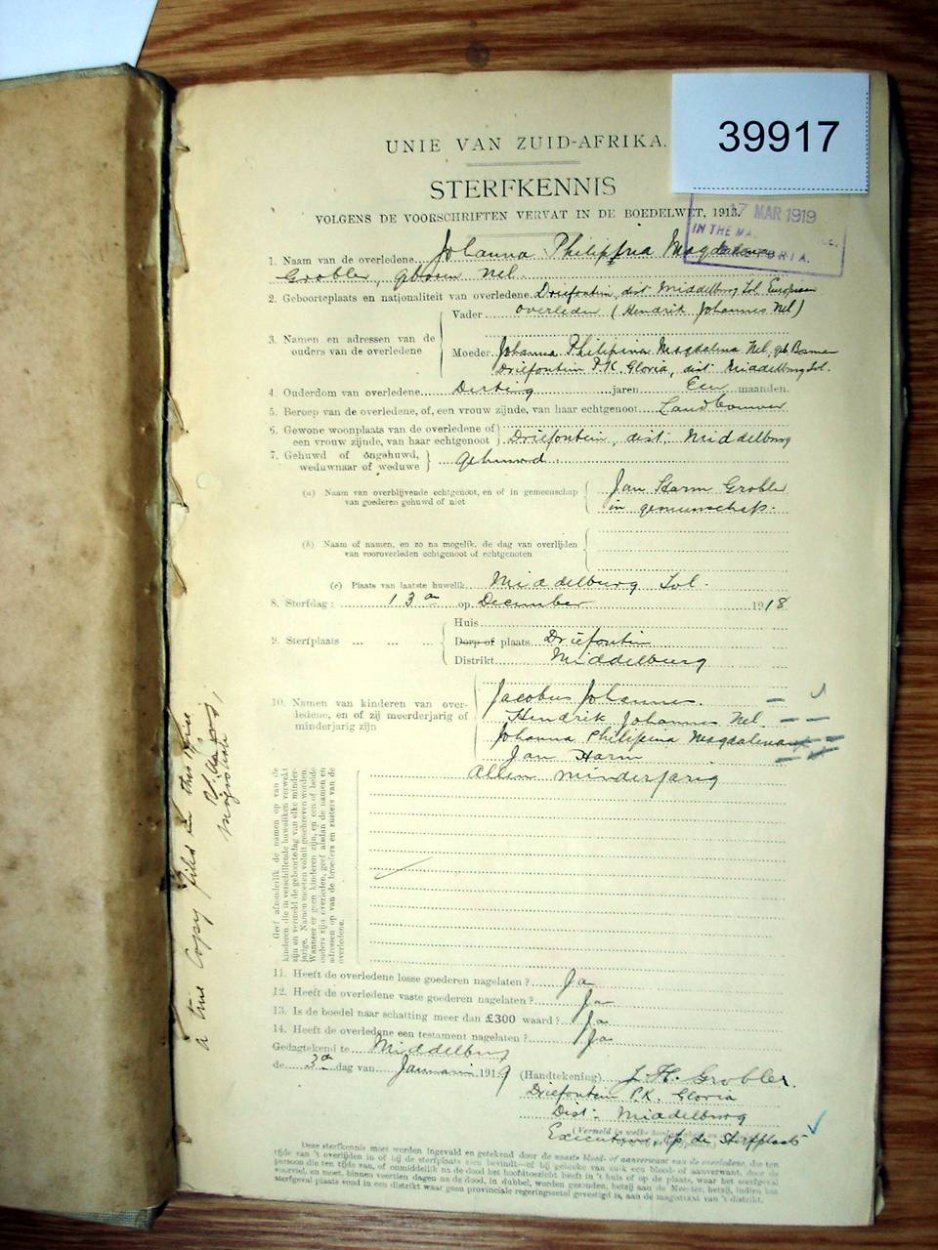 39917
UNIE VAN ZUID-AFRIKA.
STERFKENNIS
VOLGENS DE VOORSCHRIFTEN VERVAT IN DE BOEDELWET, 1913.
17 MAR 1919
IN THE
1. Naam van de overledene Johanna Philippina Magdalena
Grobler, geboren Nel
2. Geboorteplaats en nationaliteit van overledene Driefontein, dist Middelburg Tvl. European
3. Namen en adressen van de ouders van de overledene
Vader overleden (Hendrik Johannes Nel)
Moeder Johanna Philipina Magdalina Nel, geb Bosman
Driefontein P.K. Gloria, dist Middelburg Tvl.
4. Ouderdom van overledene Dertig jaren Een maanden.
5. Beroep van de overledene, of, een vrouw zijnde, van haar echtgenoot Landbouwer
6. Gewone woonplaats van de overledene of
een vrouw zijnde, van haar echtgenoot Driefontein, dist. Middelburg
7. Gehuwd of ongehuwd,
weduwnaar of weduwe gehuwd.
(a) Naam van overblijvende echtgenoot, en of in gemeenschap
van goederen gehuwd of niet
Jan Harm Grobler
in gemeenschap.
(b) Naam of namen, en zo na mogelik, de dag van overlijden
van vooroverleden echtgenoot of echtgenoten
(c) Plaats van laatste huwelik Middelburg Tvl.
8. Sterfdag: 13de op December 1918
9. Sterfplaats
Huis
Dorp of plaats Driefontein
Distrikt Middelburg
10. Namen van kinderen van over-
ledene, en of zij meerderjarig of
minderjarig zijn
Jacobus Johannes.
Hendrik Johannes Nel
Johanna Philipina Magdalena
Jan Harm
Allen minderjarig
Geef afzonderlik de namen op van de
kinderen die in verschillende huweliken verwekt
zijn en vermeld de geboortedag van elke minder-
jarige. Namen moeten voluit geschreven worden.
Wanneer er geen kinderen zijn, en een of beide
ouders zijn overleden, geef alsdan de namen en
adressen op van de broeders en zusters van de
overledene.
11. Heeft de overledene losse goederen nagelaten? Ja
12. Heeft de overledene vaste goederen nagelaten? Ja
13. Is de boedel naar schatting meer dan £300 waard? Ja
14. Heeft de overledene een testament nagelaten? Ja
Gedagtekend te Middelburg
de 3de dag van Januarie 1919
(Handtekening) J. H. Grobler.
Driefontein P.K. Gloria
Dist. Middelburg
op de Sterfplaats
Deze sterfkennis moet worden ingevuld en getekend door de naaste bloed- of aanverwant van de overledene, die ten
tijde van 't overlijden in of bij de sterfplaats zich bevindt—of bij gebreke van zulk een bloed- of aanverwant, door de
persoon die ten tijde van, of onmiddellijk na de dood het hoofdtoezicht heeft in 't huis of op de plaats, waar het sterfgeval
voorviel, en moet, binnen veertien dagen na de dood, in dubbel, worden gezonden, hetzij aan de Meester, hetzij, indien het
sterfgeval plaats vond in een distrikt waar geen provinciale regeringszetel gevestigd is, aan de magistraat van 't distrikt.
a true Copy filed in this office
Magistrate